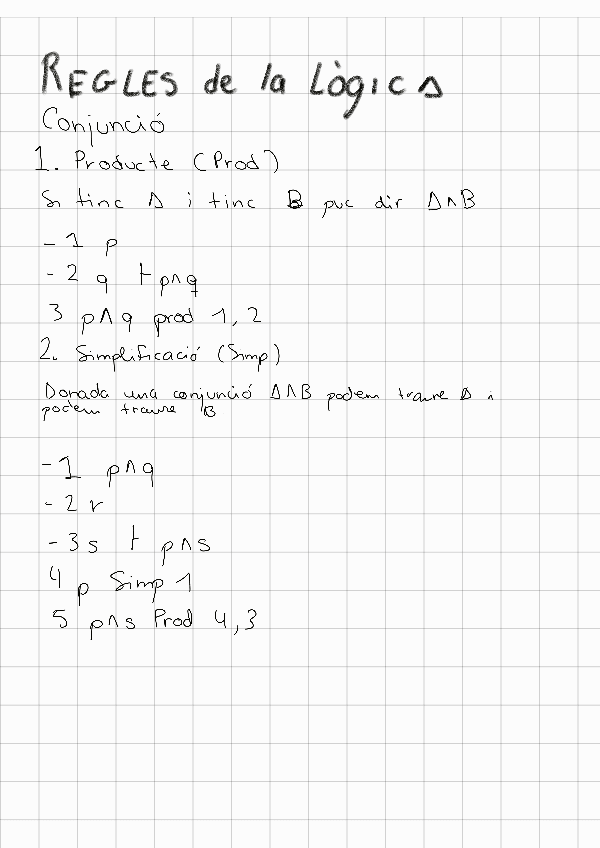 REGLES de la LògicA
Conjunció
1. Producte (Prod)
Si tinc A i tinc B puc dir A∧B
-1 p
-2 q ⊢ p∧q
3 p∧q prod 1, 2
2. Simplificació (Simp)
Donada una conjunció A∧B podem traure A i
podem traure B
-1 p∧q
-2 r
-3 s ⊢ p∧s
4 p Simp 1
5 p∧s Prod 4,3